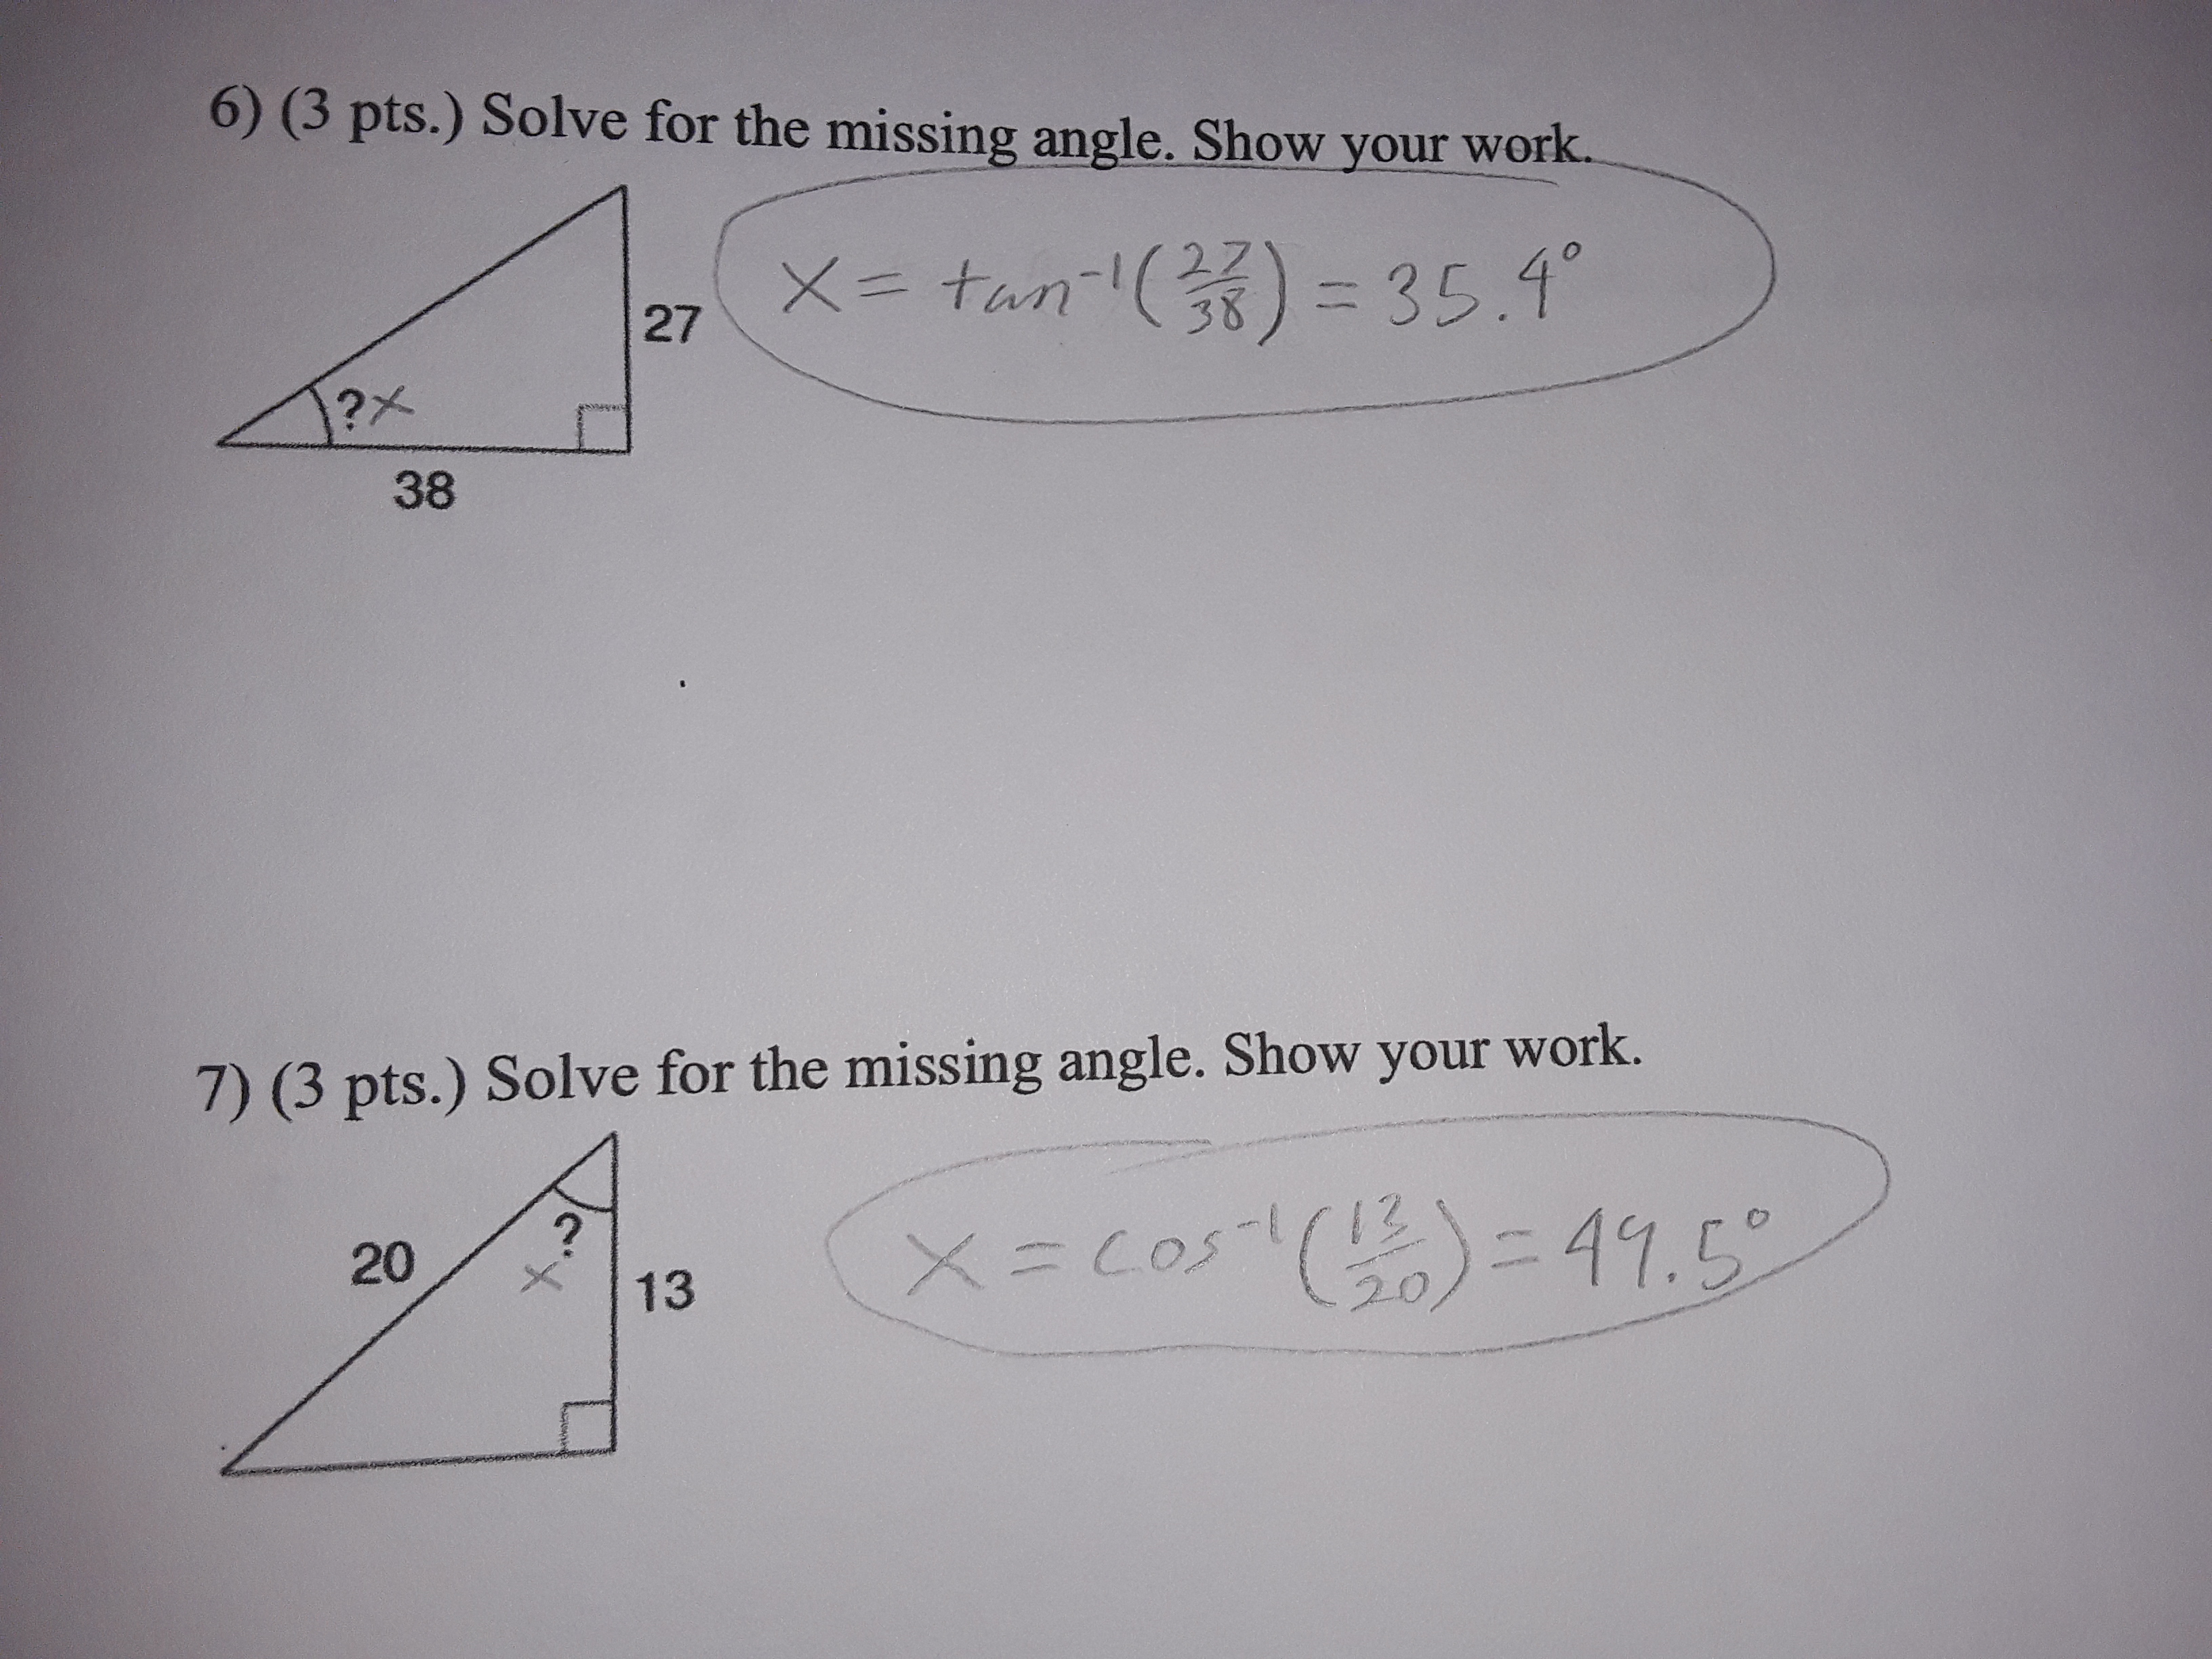 6) (3 pts.) Solve for the missing angle. Show your work.
x = tan⁻¹(27/38) = 35.4°
27
?x
38
7) (3 pts.) Solve for the missing angle. Show your work.
20
?
x
13
x = cos⁻¹(13/20) = 49.5°